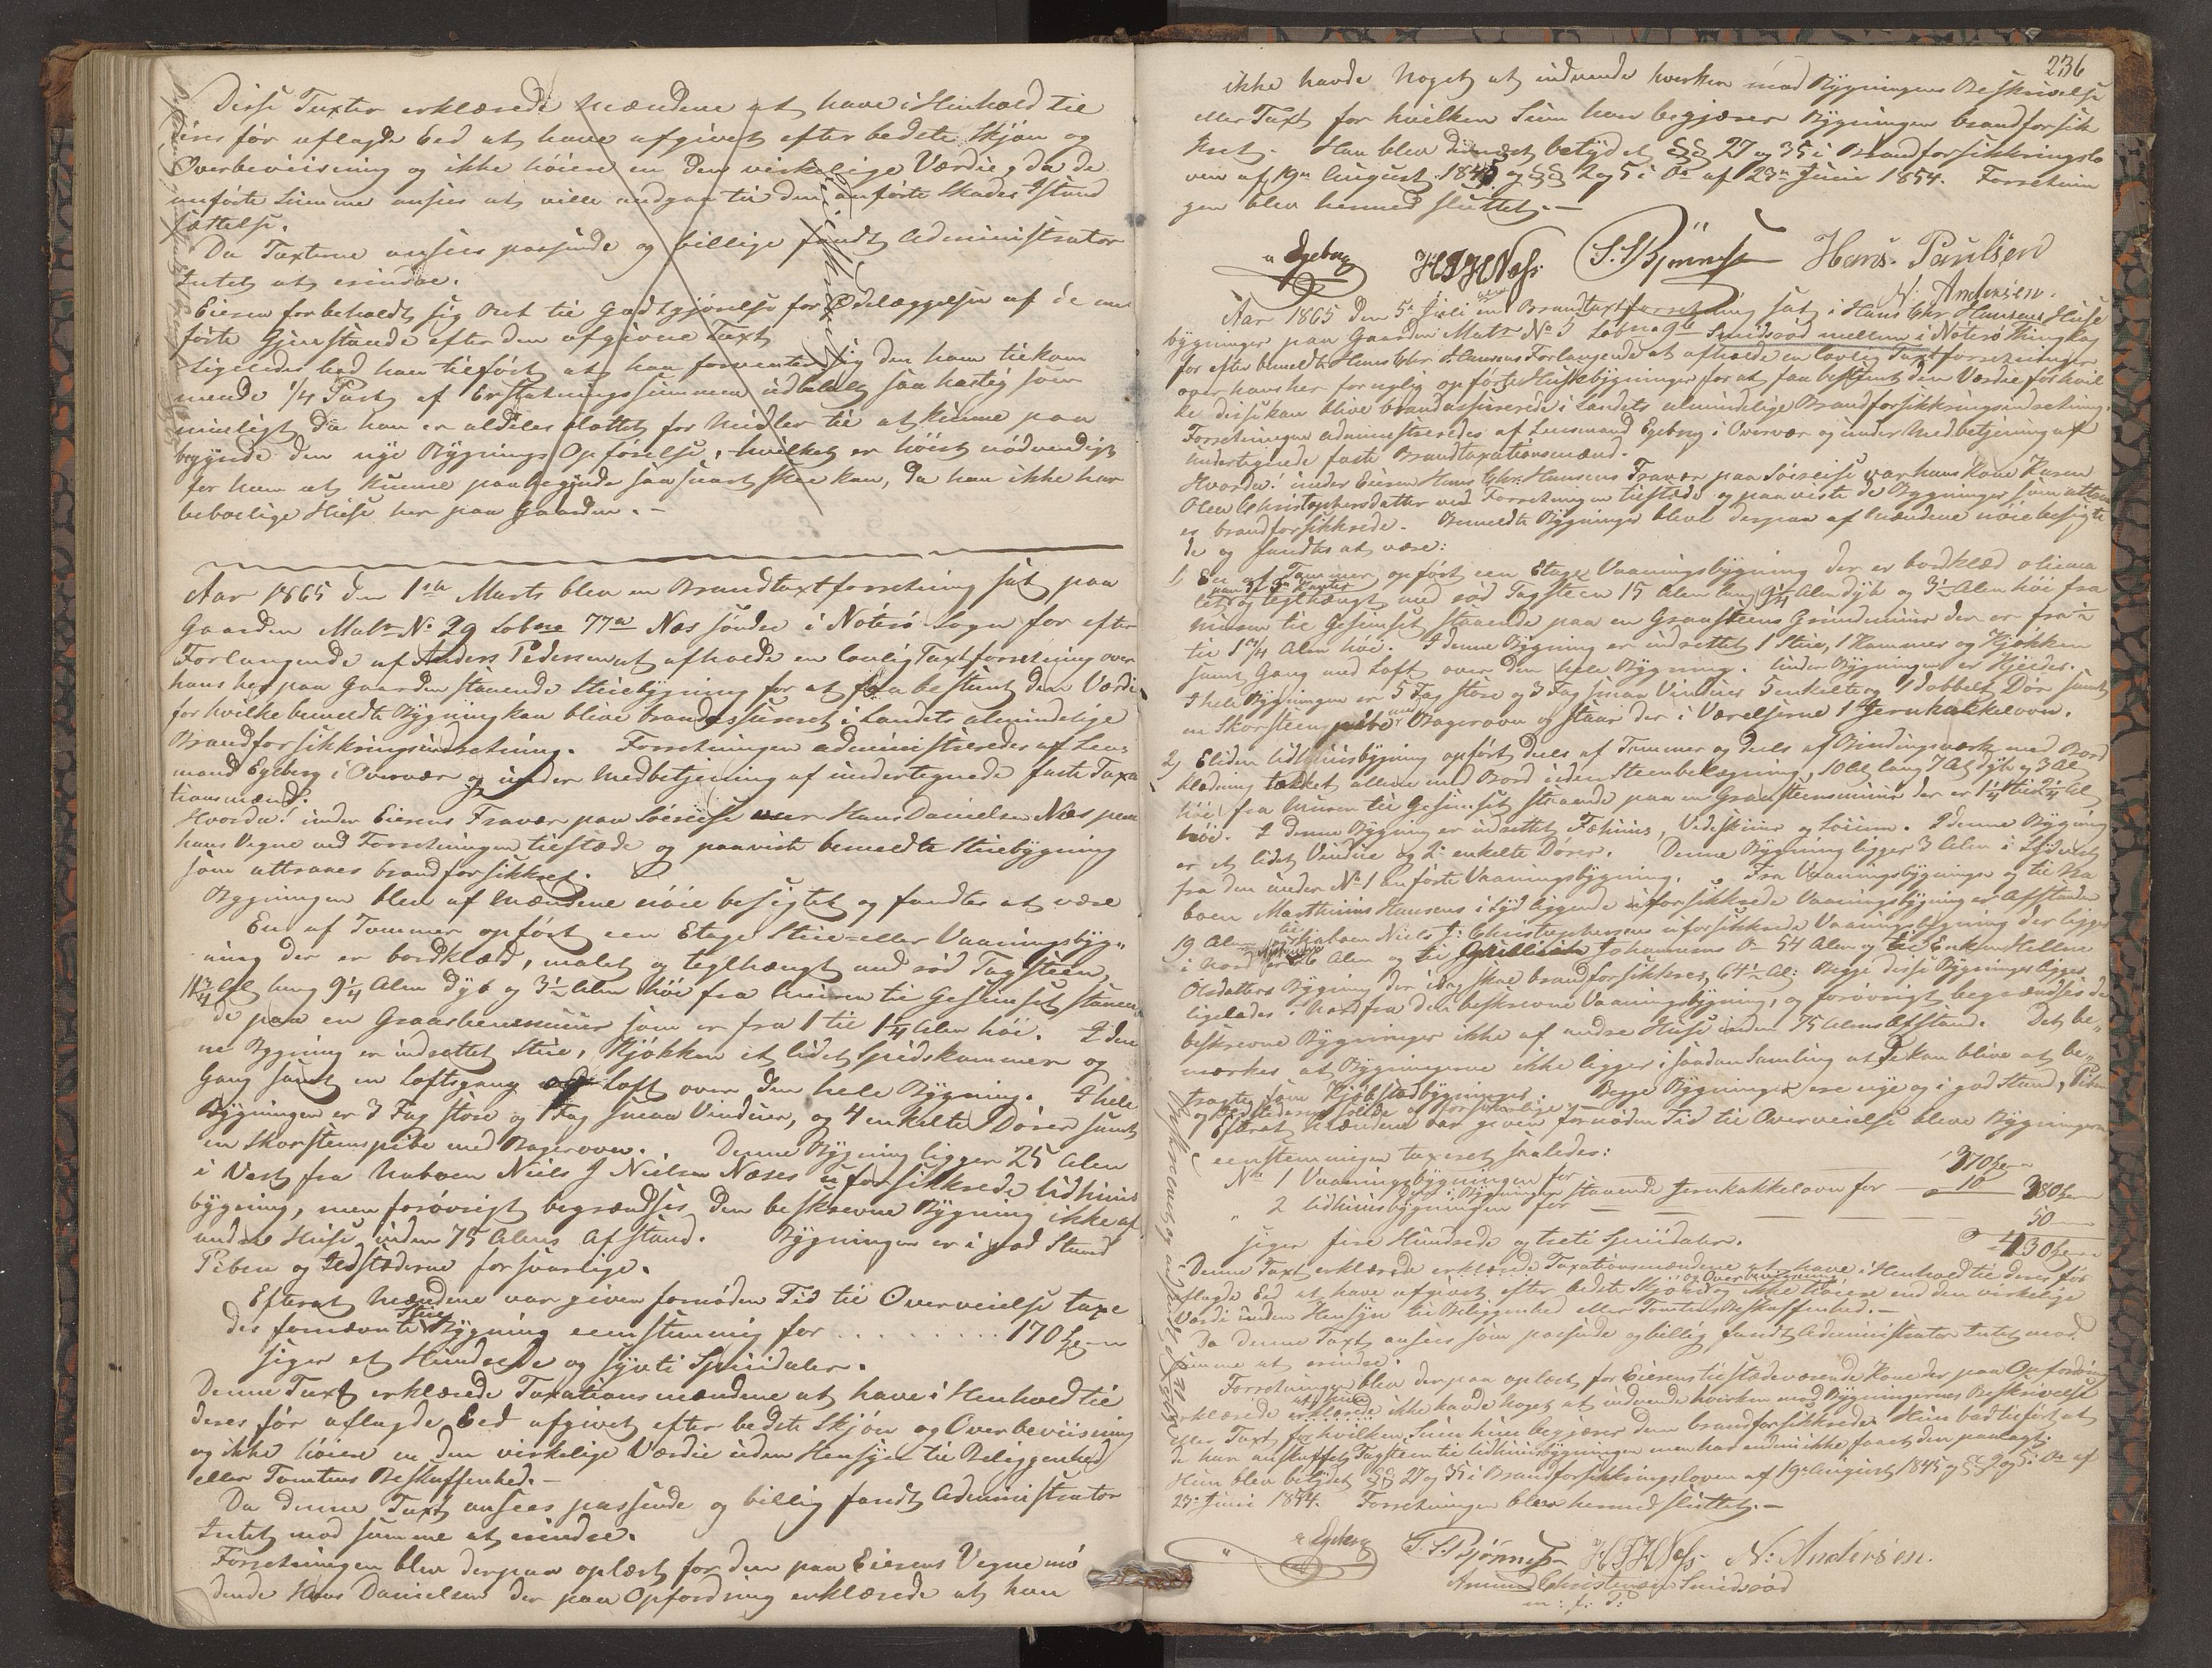 Disse Taxter erklærede Mændene at have i Henhold til
før aflagde Eed at have afgivet efter bedste Skjøn og
Overbeviisning og ikke høiere en den virkelige Værdie, da de
anførte Summe ansees at ville medgaa til den anførte Skades Istand
sættelse.
Da Taxterne ansees passende og billige fandt Administrator
Intet at erindre.
Eieren forbeholdt sig Ret til Godtgjørelse for Ødelæggelsen af de an
førte Gjenstande efter den afgivne Taxt
Ligeledes bad han tilført at han forventer sig den ham tilkom
mende 1/4 Part af Erstatningssummen udbetalt saa hastig som
muligt da han er aldeles blottet for Midler til at kunne paa
begynde den nye Bygnings Opførelse, hvilket er høist nødvendigt
for ham at kunne paabegynde saa snart skee kan, da han ikke har
beboelige Huse her paa Gaarden. -
Aar 1865 den 1ste Marts blev en Brandtaxtforretning sat paa
Gaarden Matr No 29 Løbne 77a Næs søndre i Nøterø Sogn for efter
Forlangende af Anders Pedersen at afholde en lovlig Taxtforretning over
hans her paa Gaarden staaende Stuebygning for at faa bestemt den Værdi
for hvilke bemeldte Bygning kan blive brandassureret i Landets almindelige
Brandforsikkringsindretning. Forretningen administreredes af Lens
mand Egeberg i Overvær og under Medbetjening af undertegnede faste Taxa
tionsmænd.
Hvorda! under Eierens Fravær paa Søreise var Hans Danielsen Næs paa
hans Vegne ved Forretningen tilstæde og paaviste bemeldte Stuebygning
som attraaes brandforsikkret.
Bygningen blev af Mændene nøie besigtet og fandtes at være
En af Tømmer opført een Etage Stue- eller Vaaningsbyg-
ning der er bordklæd, malet og teglhængt med rød Tagsteen
11 3/4 Al lang 9 1/4 Alen dyb og 3 1/2 Alen høi fra Muren til Gesimset staaen
de paa en Graasteensmuur som er fra 1 til 1 1/4 Alen høi. I den
ne Bygning er indrettet Stue, Kjøkken et lidet Spidskammer og
Gang samt en Loftsgang og Loft over den hele Bygning. I hele
Bygningen er 3 Fag store og 1 Fag smaa Vinduer, og 4 enkelte Dører samt
en Skorsteenspibe med Bagerovn. Denne Bygning ligger 25 Alen
i Vest fra Naboen Niels J Nielsen Næses uforsikkrede Udhuus
bygning, men forøvrigt begrændses den beskrevne Bygning ikke af
andre Huse inden 75 Alens Afstand. Bygningen er i god Stand
Piben og Ildstæderne forsvarlige.
Efterat Mændene var given fornøden Tid til Overveielse taxe
des fornævnte Stue Bygning eenstemmig for . . . . . . . . . 170
siger et Hundrede og syvti Speciedaler.
Denne Taxt erklærede Taxationsmændene at have i Henhold til
deres før aflagde Eed afgivet efter bedste Skjøn og Overbeviisning
og ikke høiere en den virkelige Værdie uden Hensyn til Beliggenhed
eller Tomtens Beskaffenhed. -
Da denne Taxt ansees passende og billig fandt Administrator
Intet mod samme at erindre.
Forretningen blev derpaa oplæst for den paa Eierens Vegne mø
dende Hans Danielsen der paa Opfordring erklærede at han
236
ikke havde Noget at indvende hverken mod Bygningens Beskrivelse
eller Taxt for hvilken Sum han begjærer Bygningen brandforsik
kret. Han blev dernæst betydet §§ 27 og 35 i Brandforsikkringslo
ven af 19de August 1845 og §§ 2 og 5 i Do af 23de Juni 1854. Forretnin
gen blev hermed sluttet. -
Egeberg HJHNæss S. S. Bjønnes Hans Paulsen
N: Andersen.
Aar 1865 den 5te Juli blev en Brandtaxtforretning sat i Hans Chr. Hansens Huse
bygninger paa Gaarden Matr No 5 Løbne 9b Smidsrød mellem i Nøterø Thinglag
for efter bemeldte Hans Chr Hansens Forlangende at afholde en lovlig Taxtforretninger
over hans her for nylig opførte Husebygninger for at faa bestemt den Værdie for hvil
ke disse kan blive brandassurerede i Landets almindelige Brandforsikkringsindretning.
Forretningen administreredes af Lensmand Egeberg i Overvær og under Medbetjening af
undertegnede faste Brandtaxationsmænd.
Hvorda! under Eieren Hans Chr. Hansens Fravær paa Søreise var hans Kone Karen
Olea Christophersdatter ved Forretningen tilstæde og paaviste de Bygninger som attraa
es brandforsikkrede. Bemeldte Bygninger blev derpaa af Mændene nøie besigte
de og fandtes at være:
1, En af Tømmer opført een Etage Vaaningsbygning der er bordklæd oliema
let paa de 3 Kanter og teglhængt med rød Tagsteen 15 Alen lang 9 1/4 Alen dyb og 3 1/2 Alen høi fra
Muren til Gesimset staaende paa en Graasteens Grundmuur der er fra 1/2
til 1 1/4 Alen høi. I denne Bygning er indrettet 1 Stue, 1 Kammer og Kjøkken
samt Gang med Loft over den hele Bygning. Under Bygningen er Kjelder.
I hele Bygningen er 5 Fag store og 3 Fag smaa Vinduer 5 enkelte og 1 dobbelt Dør samt
en Skorsteenspibe med Bagerovn og staar der i Værelserne 1 Jernkakkelovn.
2, Eliden Udhuusbygning opført deels af Tømmer og deels af Bindingsværk med Bord
klædning tækket allene med Bord uden Steenbelægning, 10 Al lang 7 Al dyb og 3 Al
høi fra Muren til Gesimset staaende paa en Graasteensmuur der er 1 1/4 til 2 1/4 Al
høi. I denne Bygning er indrettet Fæhuus, Vedeskuur og Løerum. I denne Bygning
er et lidet Vindue og 2 enkelte Dører. Denne Bygning ligger 3 Alen i Sydvest
fra den under No 1 anførte Vaaningsbygning. Fra Vaaningsbygningen og til Na
boen Marthinius Hansens i Syd liggende uforsikkrede Vaaningsbygning er Afstanden
19 Alen, til Naboen Niels J: Christophersens uforsikkrede Vaaningsbygning der ligger
i Nord er Afstanden 26 Alen og til Johannesens Do 54 Alen og til Enken Helene
Olsdatters Bygning der idag skal brandforsikkres, 64 1/2 Al: Begge disse Bygninger ligger
ligeledes i Nord fra den beskrevne Vaaningsbygning, og forøvrigt begrændses de
beskrevne Bygninger ikke af andre Huse inden 75 Alens Afstand. Det be-
mærkes at Bygningerne ikke ligger i saadan Samling at de kan blive at be-
tragte som Kjøbstadbygninger. Begge Bygninger ere nye og i god Stand, Piben
og Ildstederne solide og forsvarlige. -
Efterat Mændene var given fornøden Tid til Overveielse bleve Bygningerne
eenstemmigen taxeret saaledes:
No 1 Vaaningsbygningen for 370
den i Bygningen staaende Jernkakkelovn for 10 380
" 2 Udhuusbygningen for 50
siger fire Hundrede og treti Speciedaler. 430
Denne Taxt erklærede erklærede Taxationsmændene at have i Henhold til deres før
aflagde Eed at have afgivet efter bedste Skjøn og Overbeviisning og ikke høiere end den virkelige
Værdi uden Hensyn til Beliggenhed eller Tomtens Beskaffenhed. -
Da denne Taxt ansees som passende og billig fandt Administrator Intet mod
samme at erindre.
Forretningen blev derpaa oplæst for Eierens tilstædeværende Kone der paa Opfordring
erklærede at hun ikke havde Noget at indvende hverken mod Bygningernes Beskrivelse
eller Taxt for hvilken Sum hun begjærer dem brandforsikkrede. Hun bad tilført at
de har anskaffet Tagsteen til Udhuusbygningen men har endnu ikke faaet den paalagt.
Hun blev betydet §§ 27 og 35 i Brandforsikkringsloven af 19de August 1845 og §§ 2 og 5 i Do af
23de Juni 1854. Forretningen blev hermed sluttet. -
Egeberg S. S. Bjønnes HJHNæss N: Andersen.
Amund Christensen Smidsrød
m: f: P: